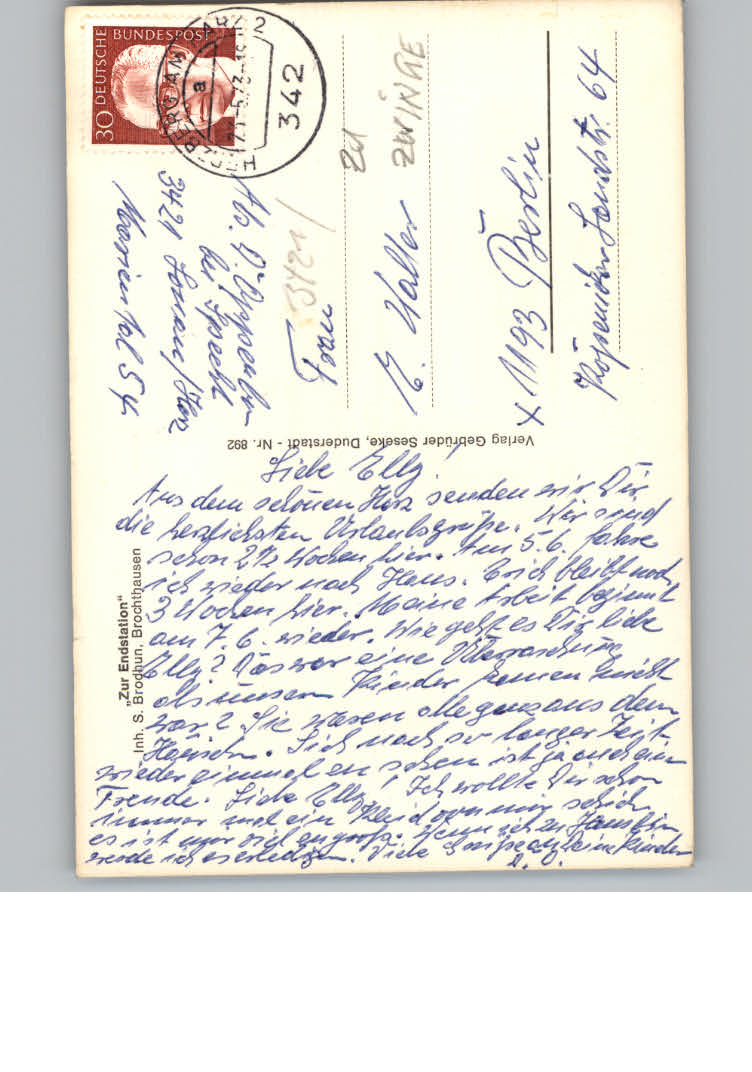 30 DEUTSCHE BUNDESPOST
HERZBERG AM HARZ 2
a
21.-5.73-18
342
Abs. D.
bei Specht
3421 Lonau/Harz
Mariental 54
3421/
Frau
zu
E. Walter ZWINGE
x 1193 Berlin
Köpenicker Landstr. 64
Verlag Gebrüder Seseke, Duderstadt - Nr. 892
„Zur Endstation“
Inh. S. Brodhun, Brochthausen
Liebe Elly!
Aus dem schönen Harz senden wir Dir
die herzlichsten Urlaubsgrüße. Wir sind
schon 2½ Wochen hier. Am 5.6. fahre
ich wieder nach Haus. Erich bleibt noch
3 Wochen hier. Meine Arbeit beginnt
am 7.6. wieder. Wie geht es Dir liebe
Elly? Das war eine Überraschung
als unsere Kinder kamen nicht
war? Sie waren alle ganz aus dem
Häuschen. Sich nach so langer Zeit
wieder einmal zu sehen ist ja auch eine
Freude. Liebe Elly! Ich wollte Dir schon
immer mal ein Kleid von mir schicken
es ist mir viel zu groß. Wenn ich zu Haus bin
werde ich es erledigen. Viele Grüße an Deine Kinder
D. O.